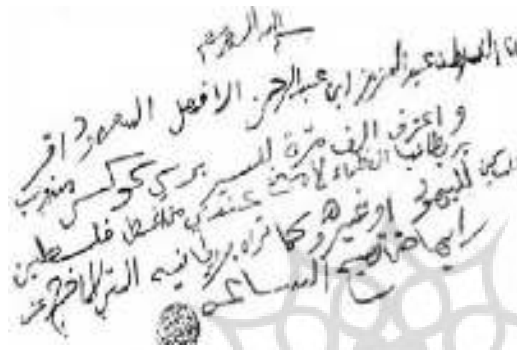 بسم الله الرحمن الرحيم
انا السلطان عبد العزيز ابن عبد الرحمن ال فيصل السعود اقر
و اعترف الف مرة للسير برسي كوكس مندوب
بريطانيا العظماء لا مانع عندي من اعطي فلسطين
للمساكين لليهود او غيرهم وكما تراه بريطانيا التي لا اخرج عن
رايها حتى تصيح الساعه